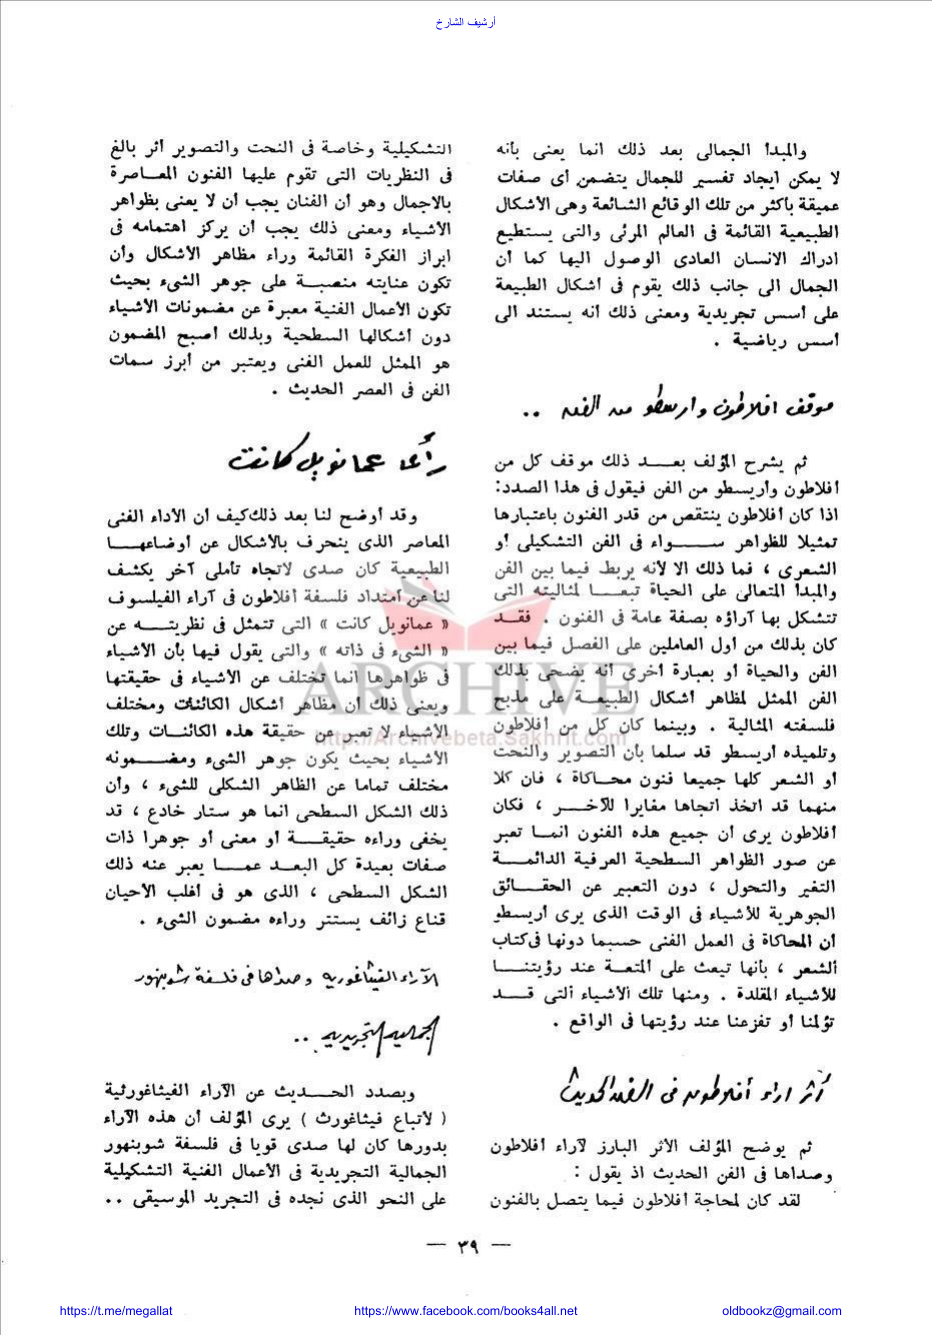 أرشيف الشارخ
والمبدأ الجمالى بعد ذلك انما يعنى بأنه
لا يمكن ايجاد تفسير للجمال يتضمن أى صفات
عميقة بأكثر من تلك الوقائع الشائعة وهى الأشكال
الطبيعية القائمة فى العالم المرئى والتى يستطيع
ادراك الانسان العادى الوصول اليها كما أن
الجمال الى جانب ذلك يقوم فى أشكال الطبيعة
على أسس تجريدية ومعنى ذلك أنه يستند الى
أسس رياضية .
موقف افلاطون وارسطو من الفن ..
ثم يشرح المؤلف بعد ذلك موقف كل من
أفلاطون وأريسطو من الفن فيقول فى هذا الصدد:
اذا كان أفلاطون ينتقص من قدر الفنون باعتبارها
تمثيلا للظواهر سواء فى الفن التشكيلى أو
الشعرى ، فما ذلك الا لأنه يربط فيما بين الفن
والمبدأ المتعالى على الحياة تبعا لمثاليته التى
تتشكل بها آراؤه بصفة عامة فى الفنون . فقد
كان بذلك من أول العاملين على الفصل فيما بين
الفن والحياة أو بعبارة أخرى أنه يضحى بذلك
الفن الممثل لمظاهر أشكال الطبيعة على مذبح
فلسفته المثالية . وبينما كان كل من أفلاطون
وتلميذه أريسطو قد سلما بأن التصوير والنحت
أو الشعر كلها جميعا فنون محاكاة ، فان كلا
منهما قد اتخذ اتجاها مغايرا للآخر ، فكان
أفلاطون يرى أن جميع هذه الفنون انما تعبر
عن صور الظواهر السطحية العرفية الدائمة
التغير والتحول ، دون التعبير عن الحقائق
الجوهرية للأشياء فى الوقت الذى يرى أريسطو
أن المحاكاة فى العمل الفنى حسبما دونها فى كتاب
الشعر ، بأنها تبعث على المتعة عند رؤيتنا
للأشياء المقلدة . ومنها تلك الأشياء التى قد
تؤلمنا أو تفزعنا عند رؤيتها فى الواقع .
أثر اراء أفلاطون فى الفن الحديث
ثم يوضح المؤلف الأثر البارز لآراء أفلاطون
وصداها فى الفن الحديث اذ يقول :
لقد كان لمحاجة أفلاطون فيما يتصل بالفنون
التشكيلية وخاصة فى النحت والتصوير أثر بالغ
فى النظريات التى تقوم عليها الفنون المعاصرة
بالاجمال وهو أن الفنان يجب أن لا يعنى بظواهر
الأشياء ومعنى ذلك يجب أن يركز اهتمامه فى
ابراز الفكرة القائمة وراء مظاهر الأشكال وأن
تكون عنايته منصبة على جوهر الشىء بحيث
تكون الأعمال الفنية معبرة عن مضمونات الأشياء
دون أشكالها السطحية وبذلك أصبح المضمون
هو الممثل للعمل الفنى ويعتبر من أبرز سمات
الفن فى العصر الحديث .
رأى عمانويل كانت
وقد أوضح لنا بعد ذلك كيف أن الأداء الفنى
المعاصر الذى ينحرف بالأشكال عن أوضاعها
الطبيعية كان صدى لاتجاه تأملى آخر يكشف
لنا عن امتداد فلسفة أفلاطون فى آراء الفيلسوف
« عمانويل كانت » التى تتمثل فى نظريته عن
« الشىء فى ذاته » والتى يقول فيها بأن الأشياء
فى ظواهرها انما تختلف عن الأشياء فى حقيقتها
ويعنى ذلك أن مظاهر أشكال الكائنات ومختلف
الأشياء لا تعبر عن حقيقة هذه الكائنات وتلك
الأشياء بحيث يكون جوهر الشىء ومضمونه
مختلف تماما عن الظاهر الشكلى للشىء ، وأن
ذلك الشكل السطحى انما هو ستار خادع ، قد
يخفى وراءه حقيقة أو معنى أو جوهرا ذات
صفات بعيدة كل البعد عما يعبر عنه ذلك
الشكل السطحى ، الذى هو فى أغلب الأحيان
قناع زائف يستتر وراءه مضمون الشىء .
الآراء الفيثاغورية وصداها فى فلسفة شوبنهور
الجمالية التجريدية ..
وبصدد الحديث عن الآراء الفيثاغورثية
( لأتباع فيثاغورث ) يرى المؤلف أن هذه الآراء
بدورها كان لها صدى قويا فى فلسفة شوبنهور
الجمالية التجريدية فى الأعمال الفنية التشكيلية
على النحو الذى نجده فى التجريد الموسيقى ..
ARCHIVE
http://Archivebeta.Sakhrit.com
— ٣٩ —
https://t.me/megallat
https://www.facebook.com/books4all.net
oldbookz@gmail.com